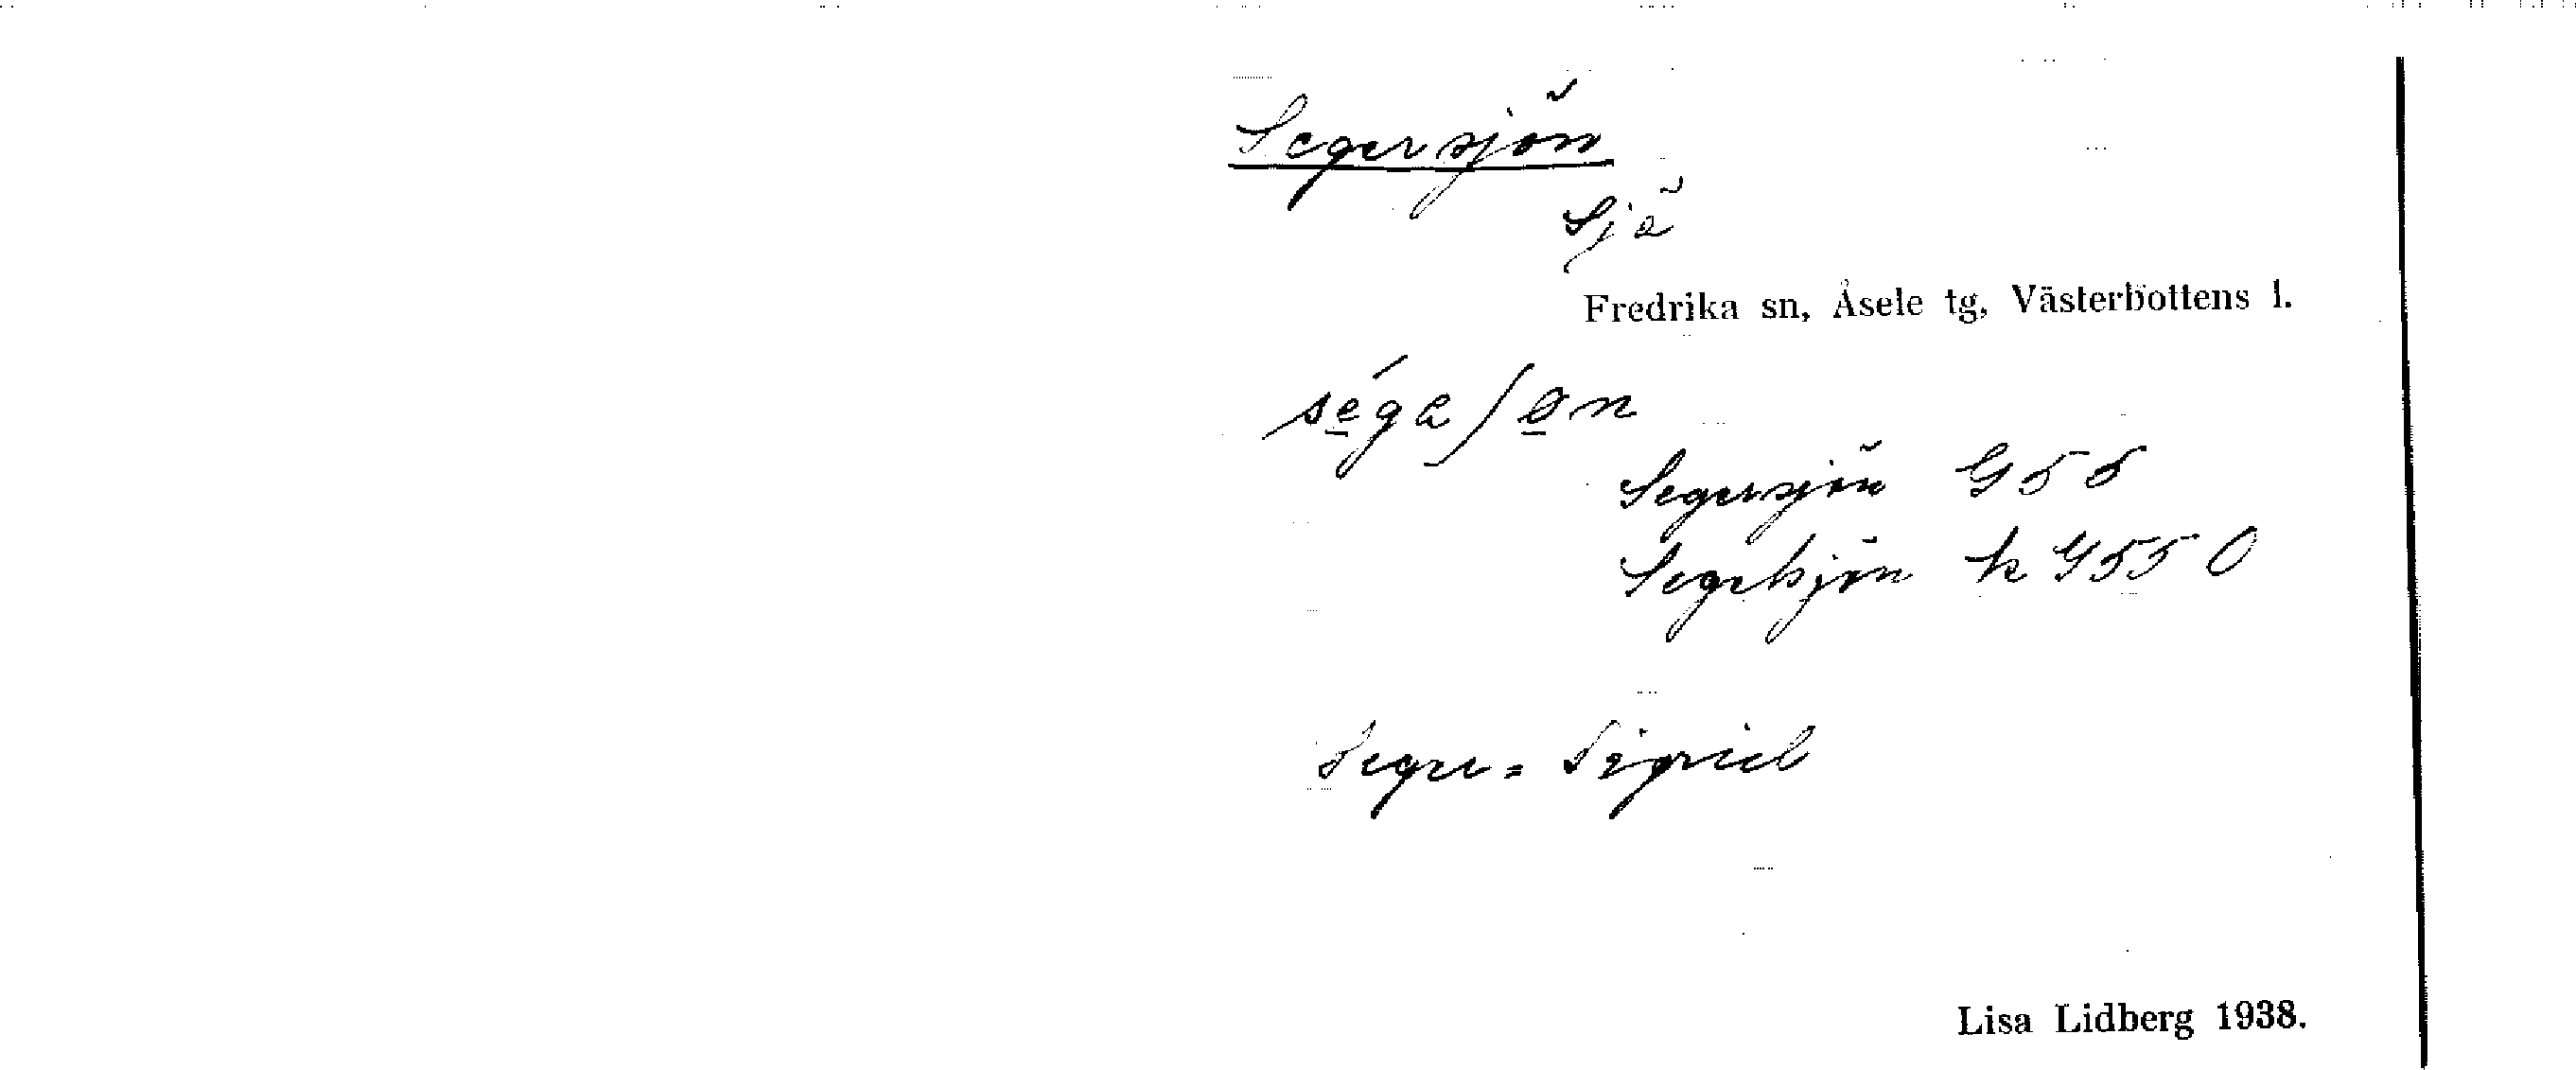 Segersjön
Sjö
Fredrika sn, Åsele tg, Västerbottens l.
ségaʃøn
Segersjön G 55
Segelsjön k G 55 O
Seger = Sigrid
Lisa Lidberg 1938.